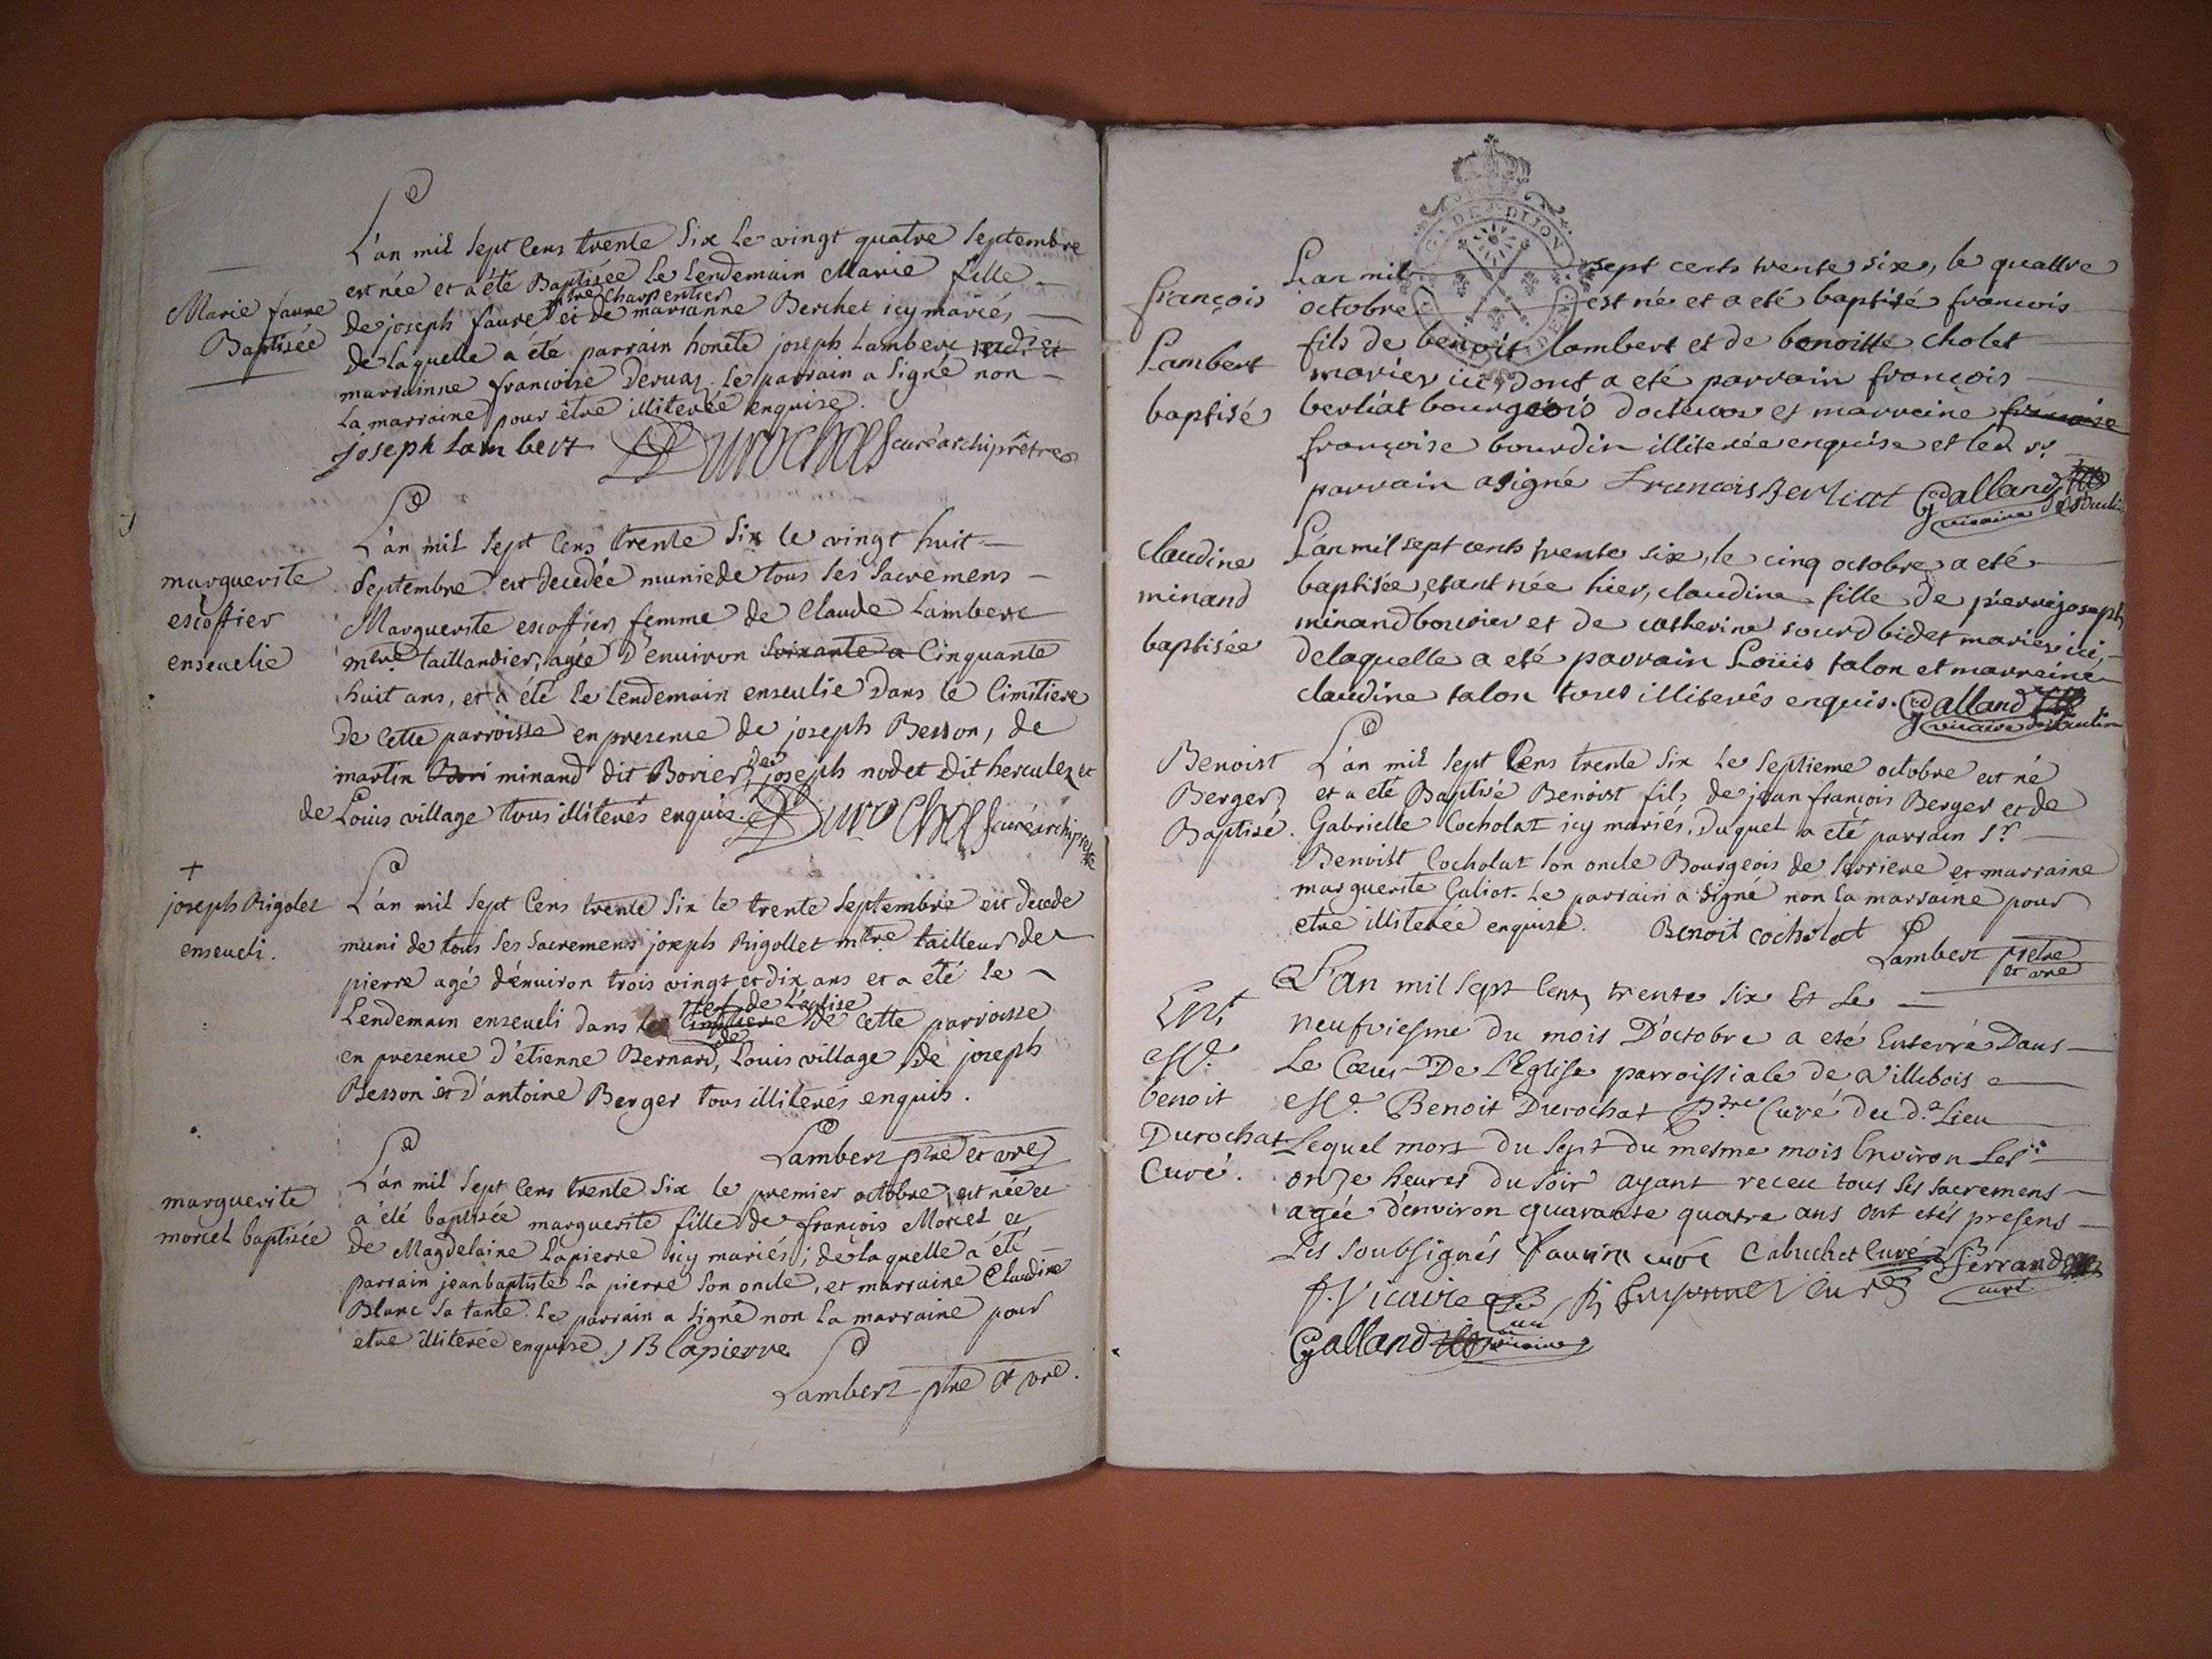 L'an mil sept cens trente six le vingt quatre septembre
Marie faure
Baptisée
est née et a été Baptisée le lendemain Marie fille
mtre charpentier
de joseph faure et de marianne Berchet icy mariés,
de laquelle a été parrain honéte joseph Lambert et
marrainne francoise Dervaz. le parrain a signé non
la marraine pour être illiterée enquise.
joseph lambert Durochat curé archiprêtre
L'an mil sept cens trente six le vingt huit
marguerite
escoffier
enseuelie
septembre est decedée munie de tous ses sacremens
Marguerite escoffier femme de Claude Lambert
mtre taillandier, agée d'enuiron soixante a Cinquante
huit ans, et a été le lendemain enseulie dans le Cimitiere
de cette parroisse en presence de joseph Besson, de
martin Bori minand dit Borier, de joseph nodet dit hercules et
de Louis village tous illiterés enquis. Durochat curé archiprêtre
+
joseph Rigolet
enseueli.
L'an mil sept cens trente six le trente septembre est decede
muni de tous ses sacremens joseph Rigollet mtre tailleur de
pierre agé d'enuiron trois vingt et dix ans et a été le
nef de l'eglise
lendemain enseueli dans la Cimitiere de cette parroisse
en presence d'etienne Bernard, de Louis village, de joseph
Besson et d'antoine Berger tous illiterés enquis.
Lambert ptre et vre
marguerite
morcel baptisée
L'an mil sept cens trente six le premier octobre est née et
a été baptisée marguerite fille de françois Morcel et
de Magdelaine Lapierre icy mariés; de laquelle a été
parrain jean baptiste la pierre son oncle, et marraine Claudine
Blanc sa tante. le parrain a signé non la marraine pour
etre illiterée enquise J B lapierre
Lambert ptre et vre.
DE DIJON
françois
Lambert
baptisé
L'an mil sept cents trente six, le quattre
octobre est né et a eté baptisé francois
fils de benoit lambert et de benoitte cholet
mariés ici, dont a eté parrain françois
berliat bourgeois docteur et marreine françoise
françoise bourdin illiterée enquise et led sr
parrain a signé Francois Berliat Galland vicaire
claudine
minand
baptisée
L'an mil sept cents trente six, le cinq octobre a eté
baptisée, etant née hier, claudine fille de pierre joseph
minand bourier et de catherine sourd bidet mariés ici,
de laquelle a eté parrain Loüis talon et marreine
claudine talon tous illiterés enquis. Galland
vicaire
Benoist
Berger
Baptisé.
L'an mil sept Cens trente six le septieme octobre est né
et a eté Baptisé Benoist fils de jean françois Berger et de
Gabrielle Cocholat icy mariés, duquel a eté parrain sr
Benoist Cocholat son oncle Bourgeois de serriere et marraine
marguerite Galiot. le parrain a signé non la marraine pour
etre illiterée enquise. Benoit cocholat
Lambert ptre
et vre
benoit
Durochat
Curé.
L'an mil sept Cents trente six Et le
neufviesme du mois D'octobre a esté Enterré Dans
Le Cœur De L'Eglise parroissiale de Villebois
Benoit Durochat ptre Curé du d. Lieu
Lequel mort du sept du mesme mois Environ Les
onze heures du soir ayant receu tous ses sacremens
agée d'environ quarante quatre ans ont estés presens
Les soubsignés faurin curé Cabuchet Curé ferrand
curé
Vicaire
Galland vicaire